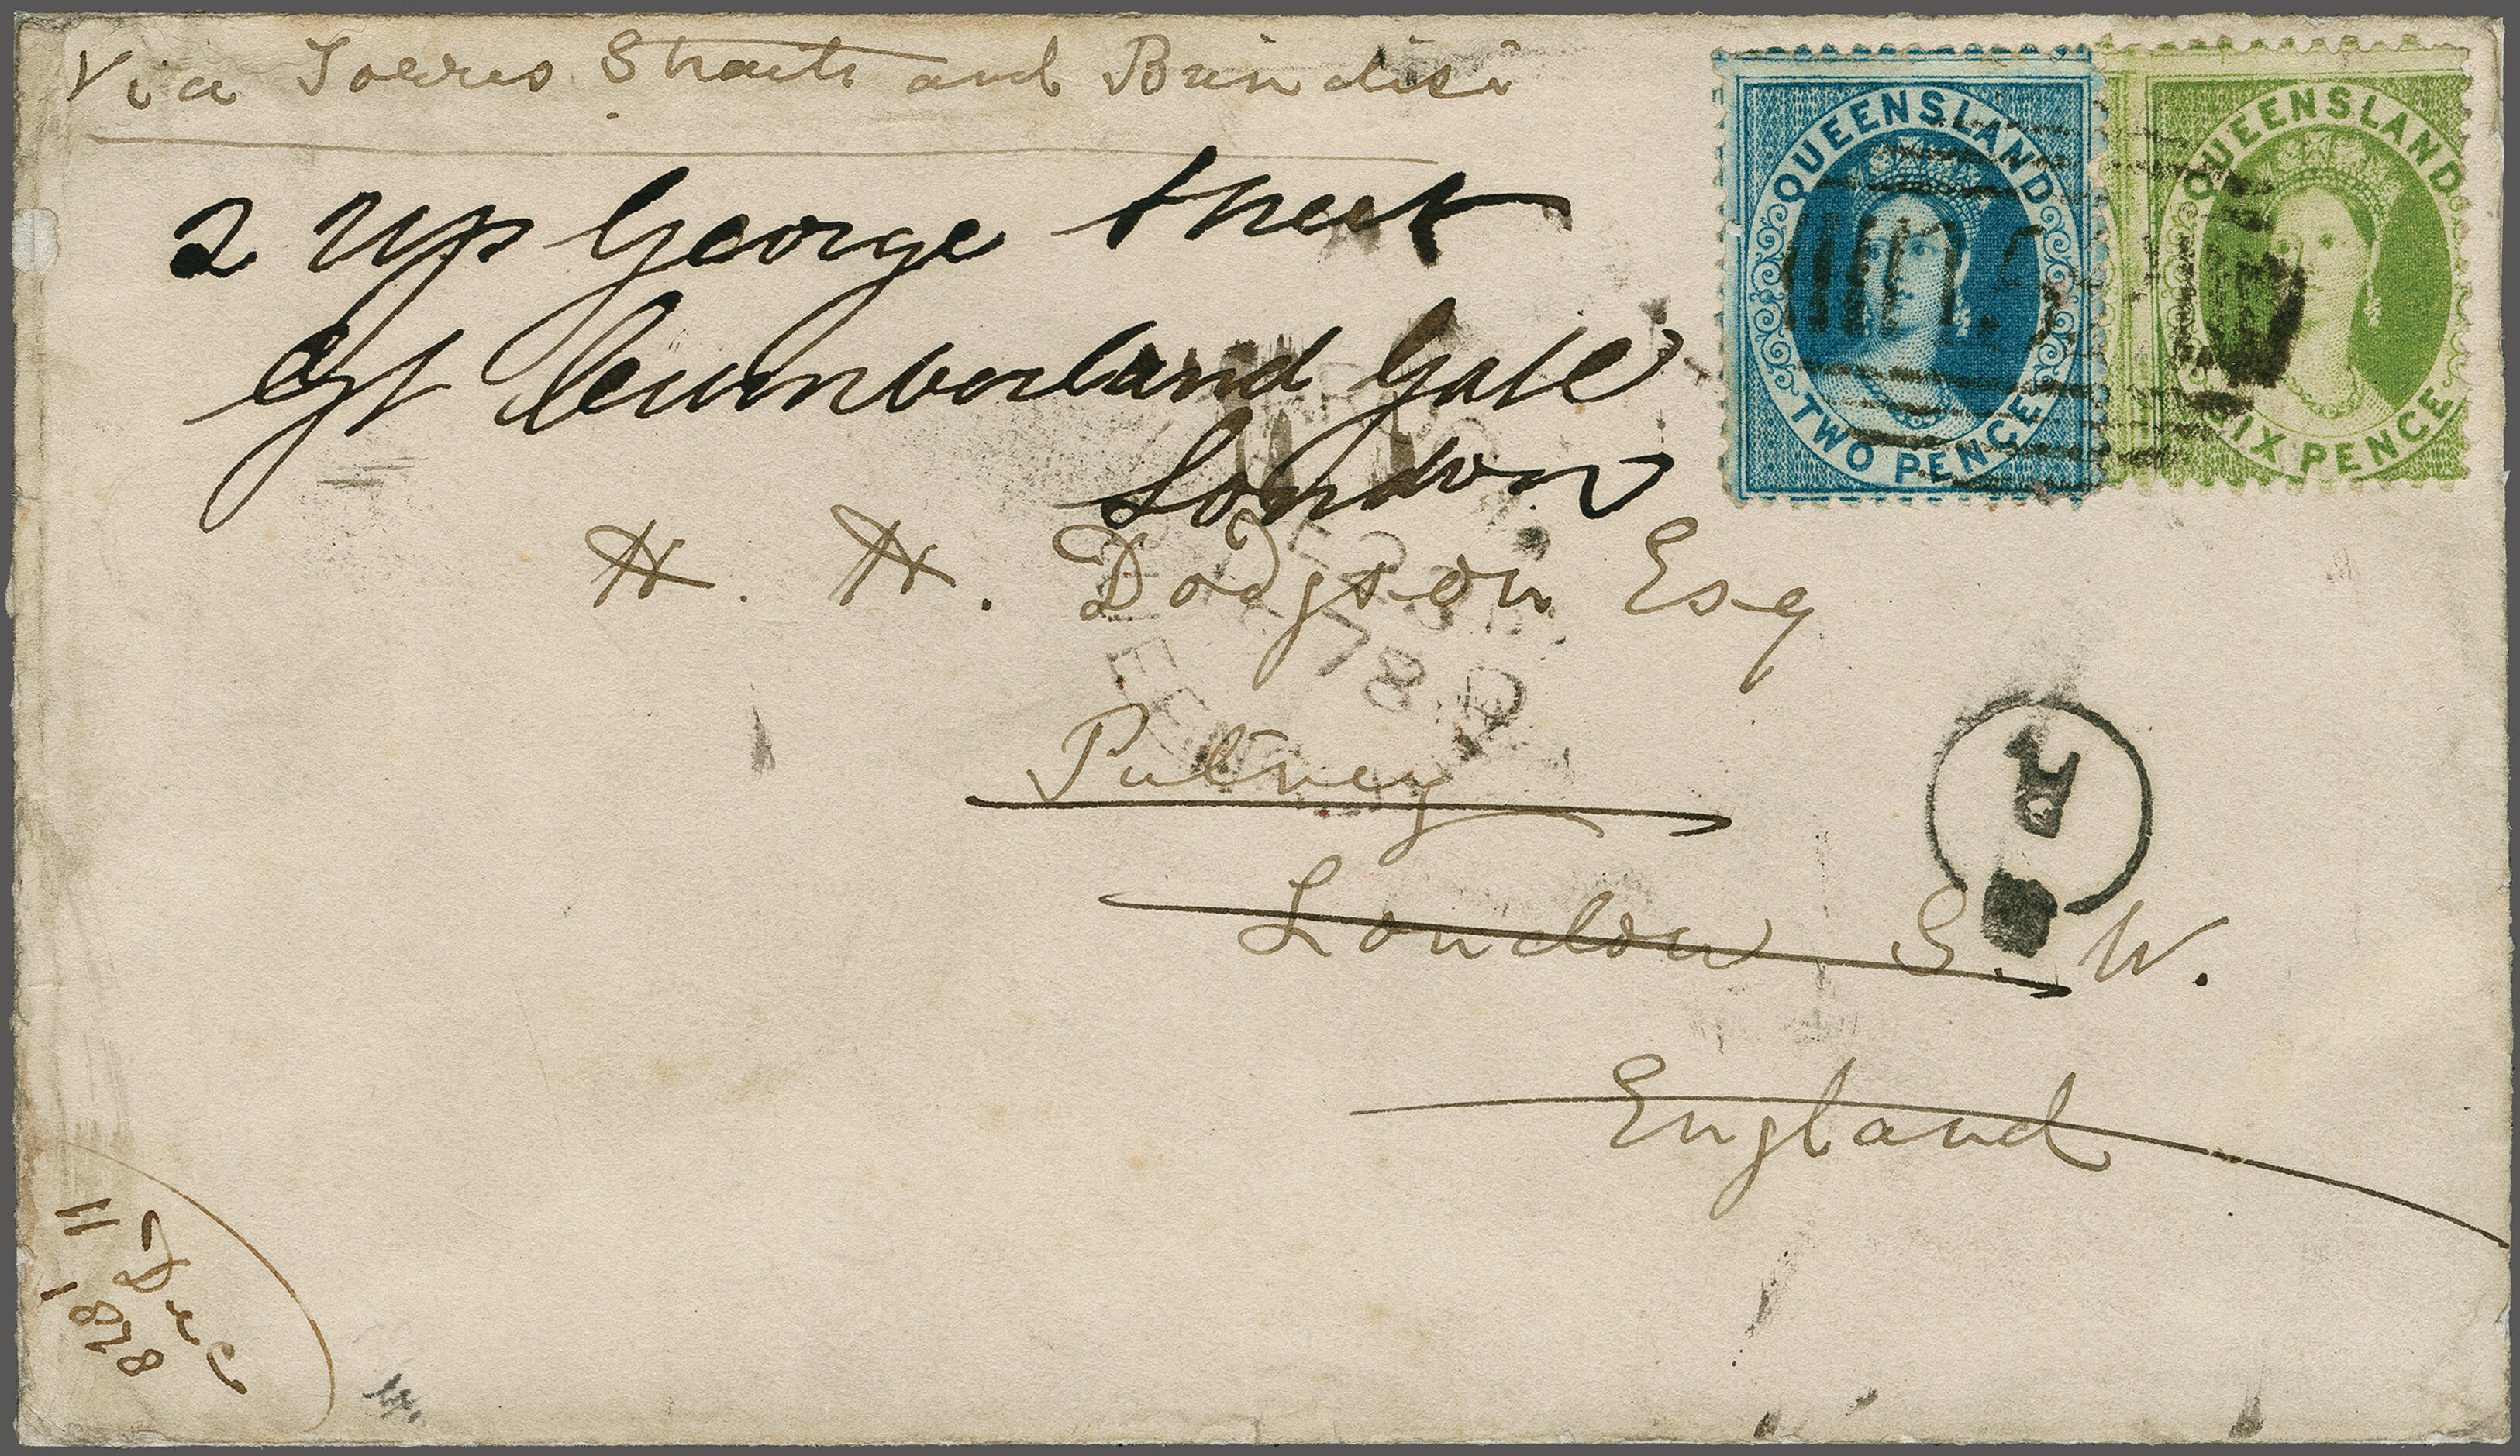 Via Torres Straits and Brindisi
QUEENSLAND
TWO PENCE
QUEENSLAND
SIX PENCE
2 Up George Street
Gt Cumberland Gate
London
H. H. Dodgson Esq
78
Putney
London S. W.
England
11 Dec
1878